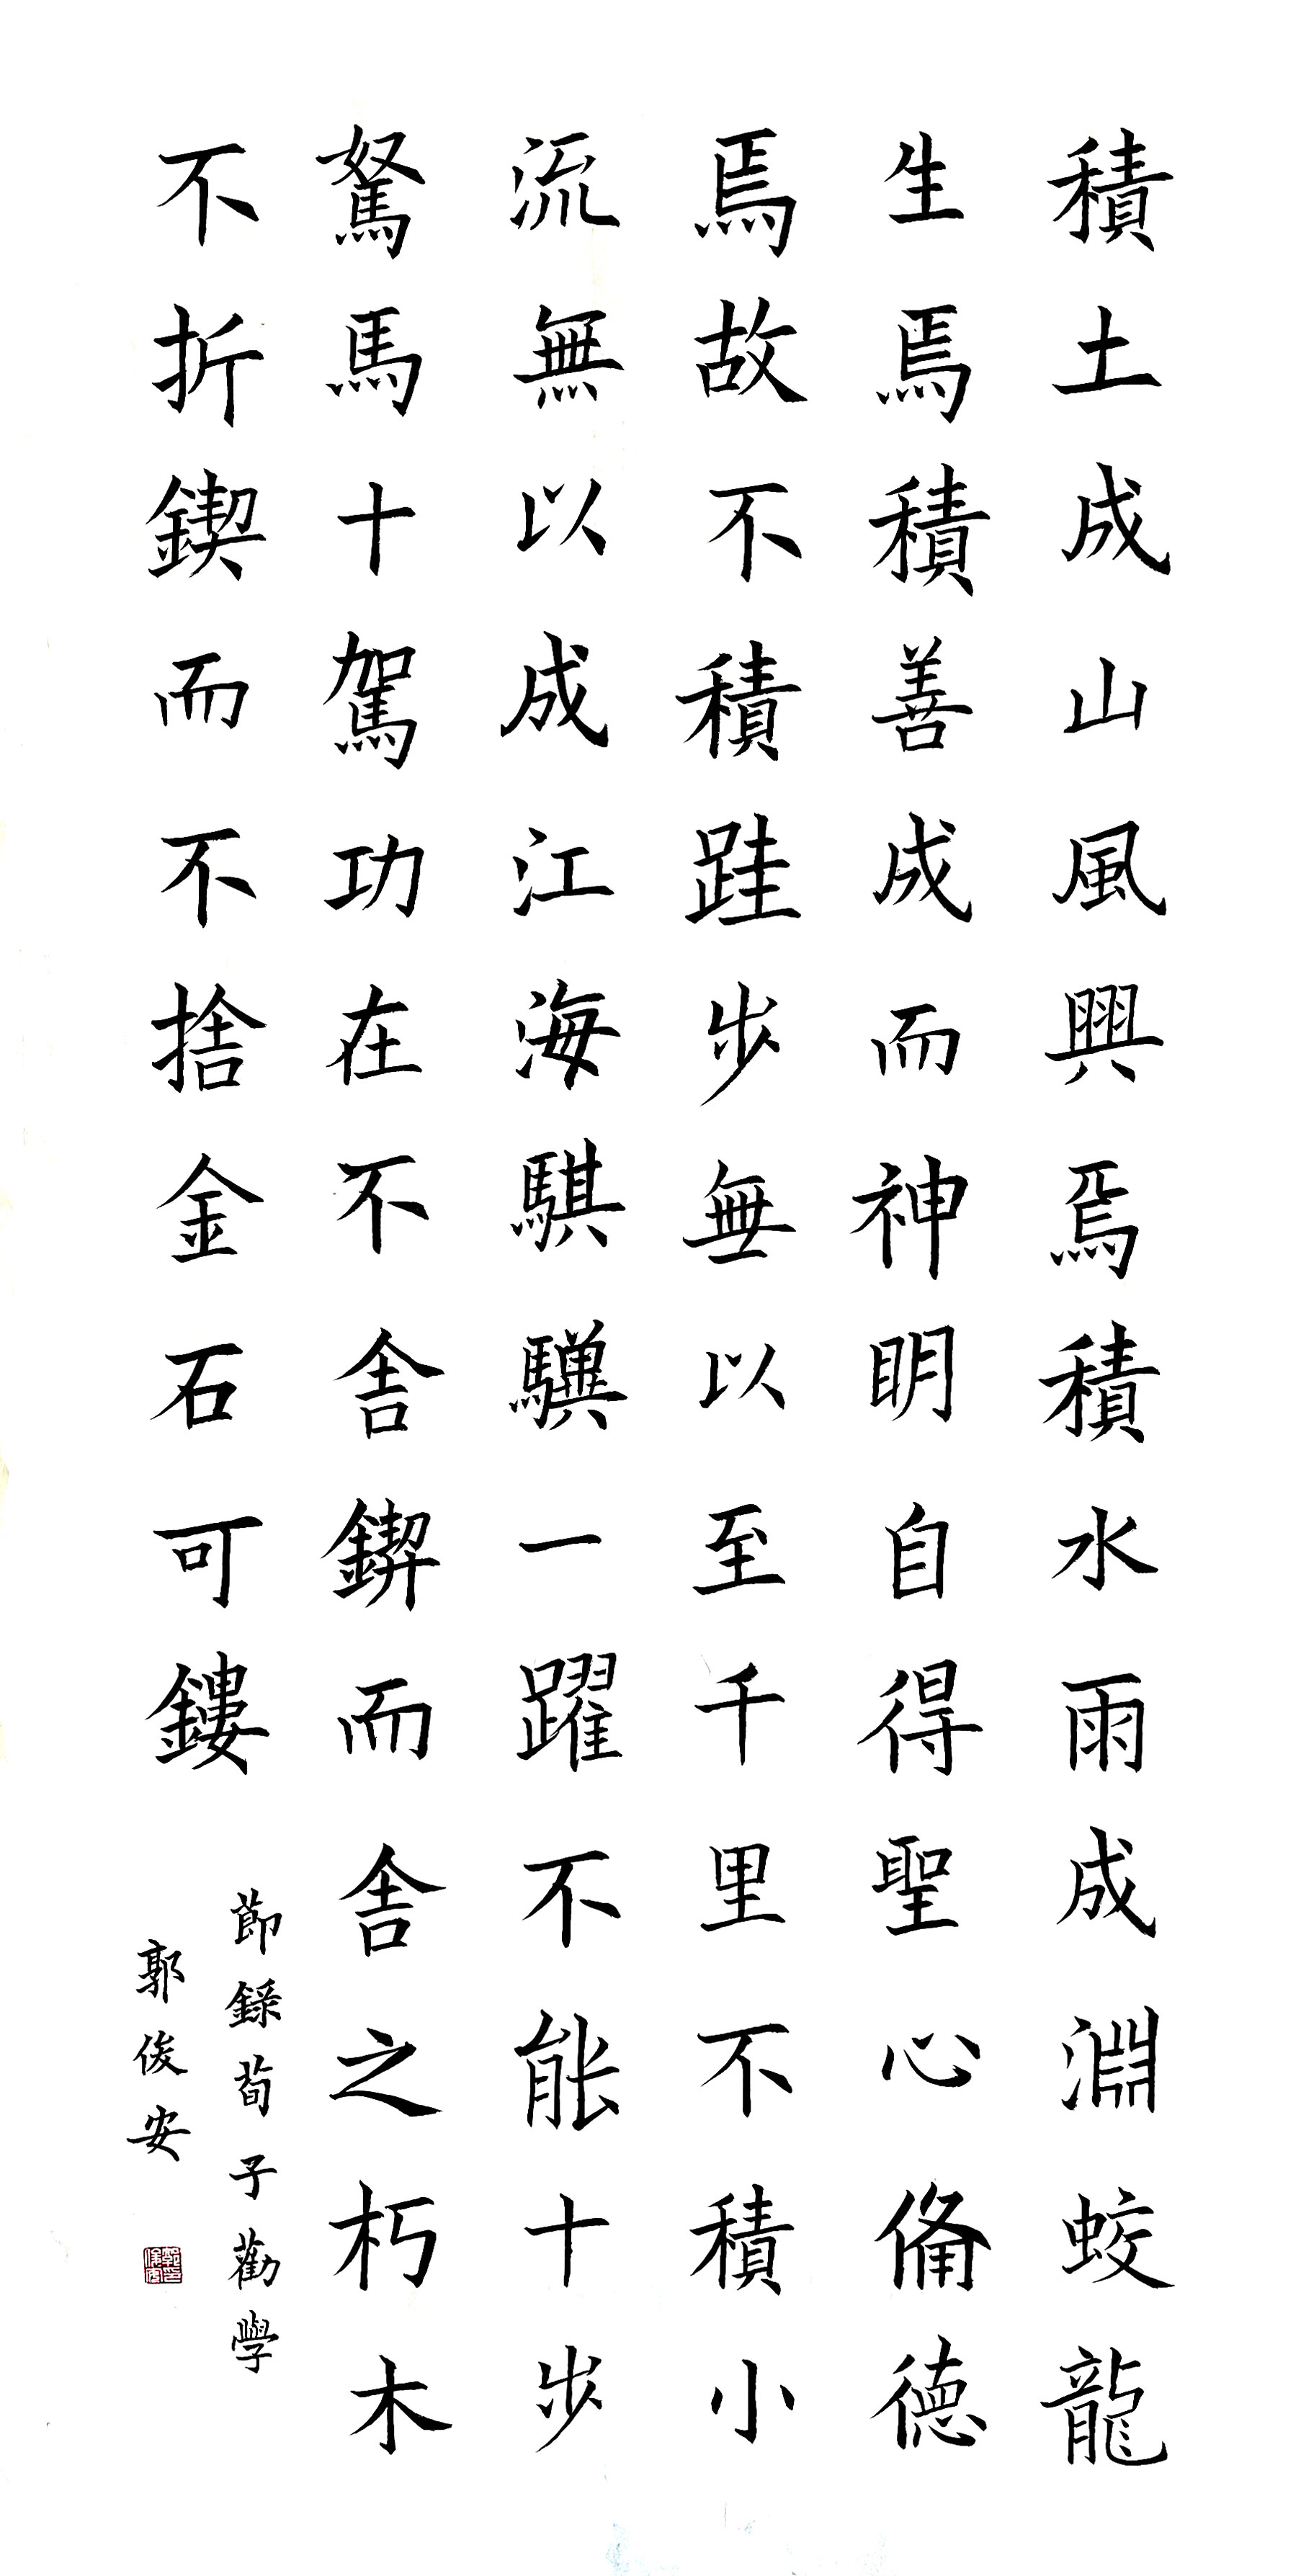 積土成山風興焉積水雨成淵蛟龍
生焉積善成而神眀自得聖心偹德
焉故不積跬步無以至千里不積小
流無以成江海騏驥一躍不能十步
駑馬十駕功在不舍鍥而舍之朽木
不折鍥而不捨金石可鏤
節錄荀子勸學
郭俊安